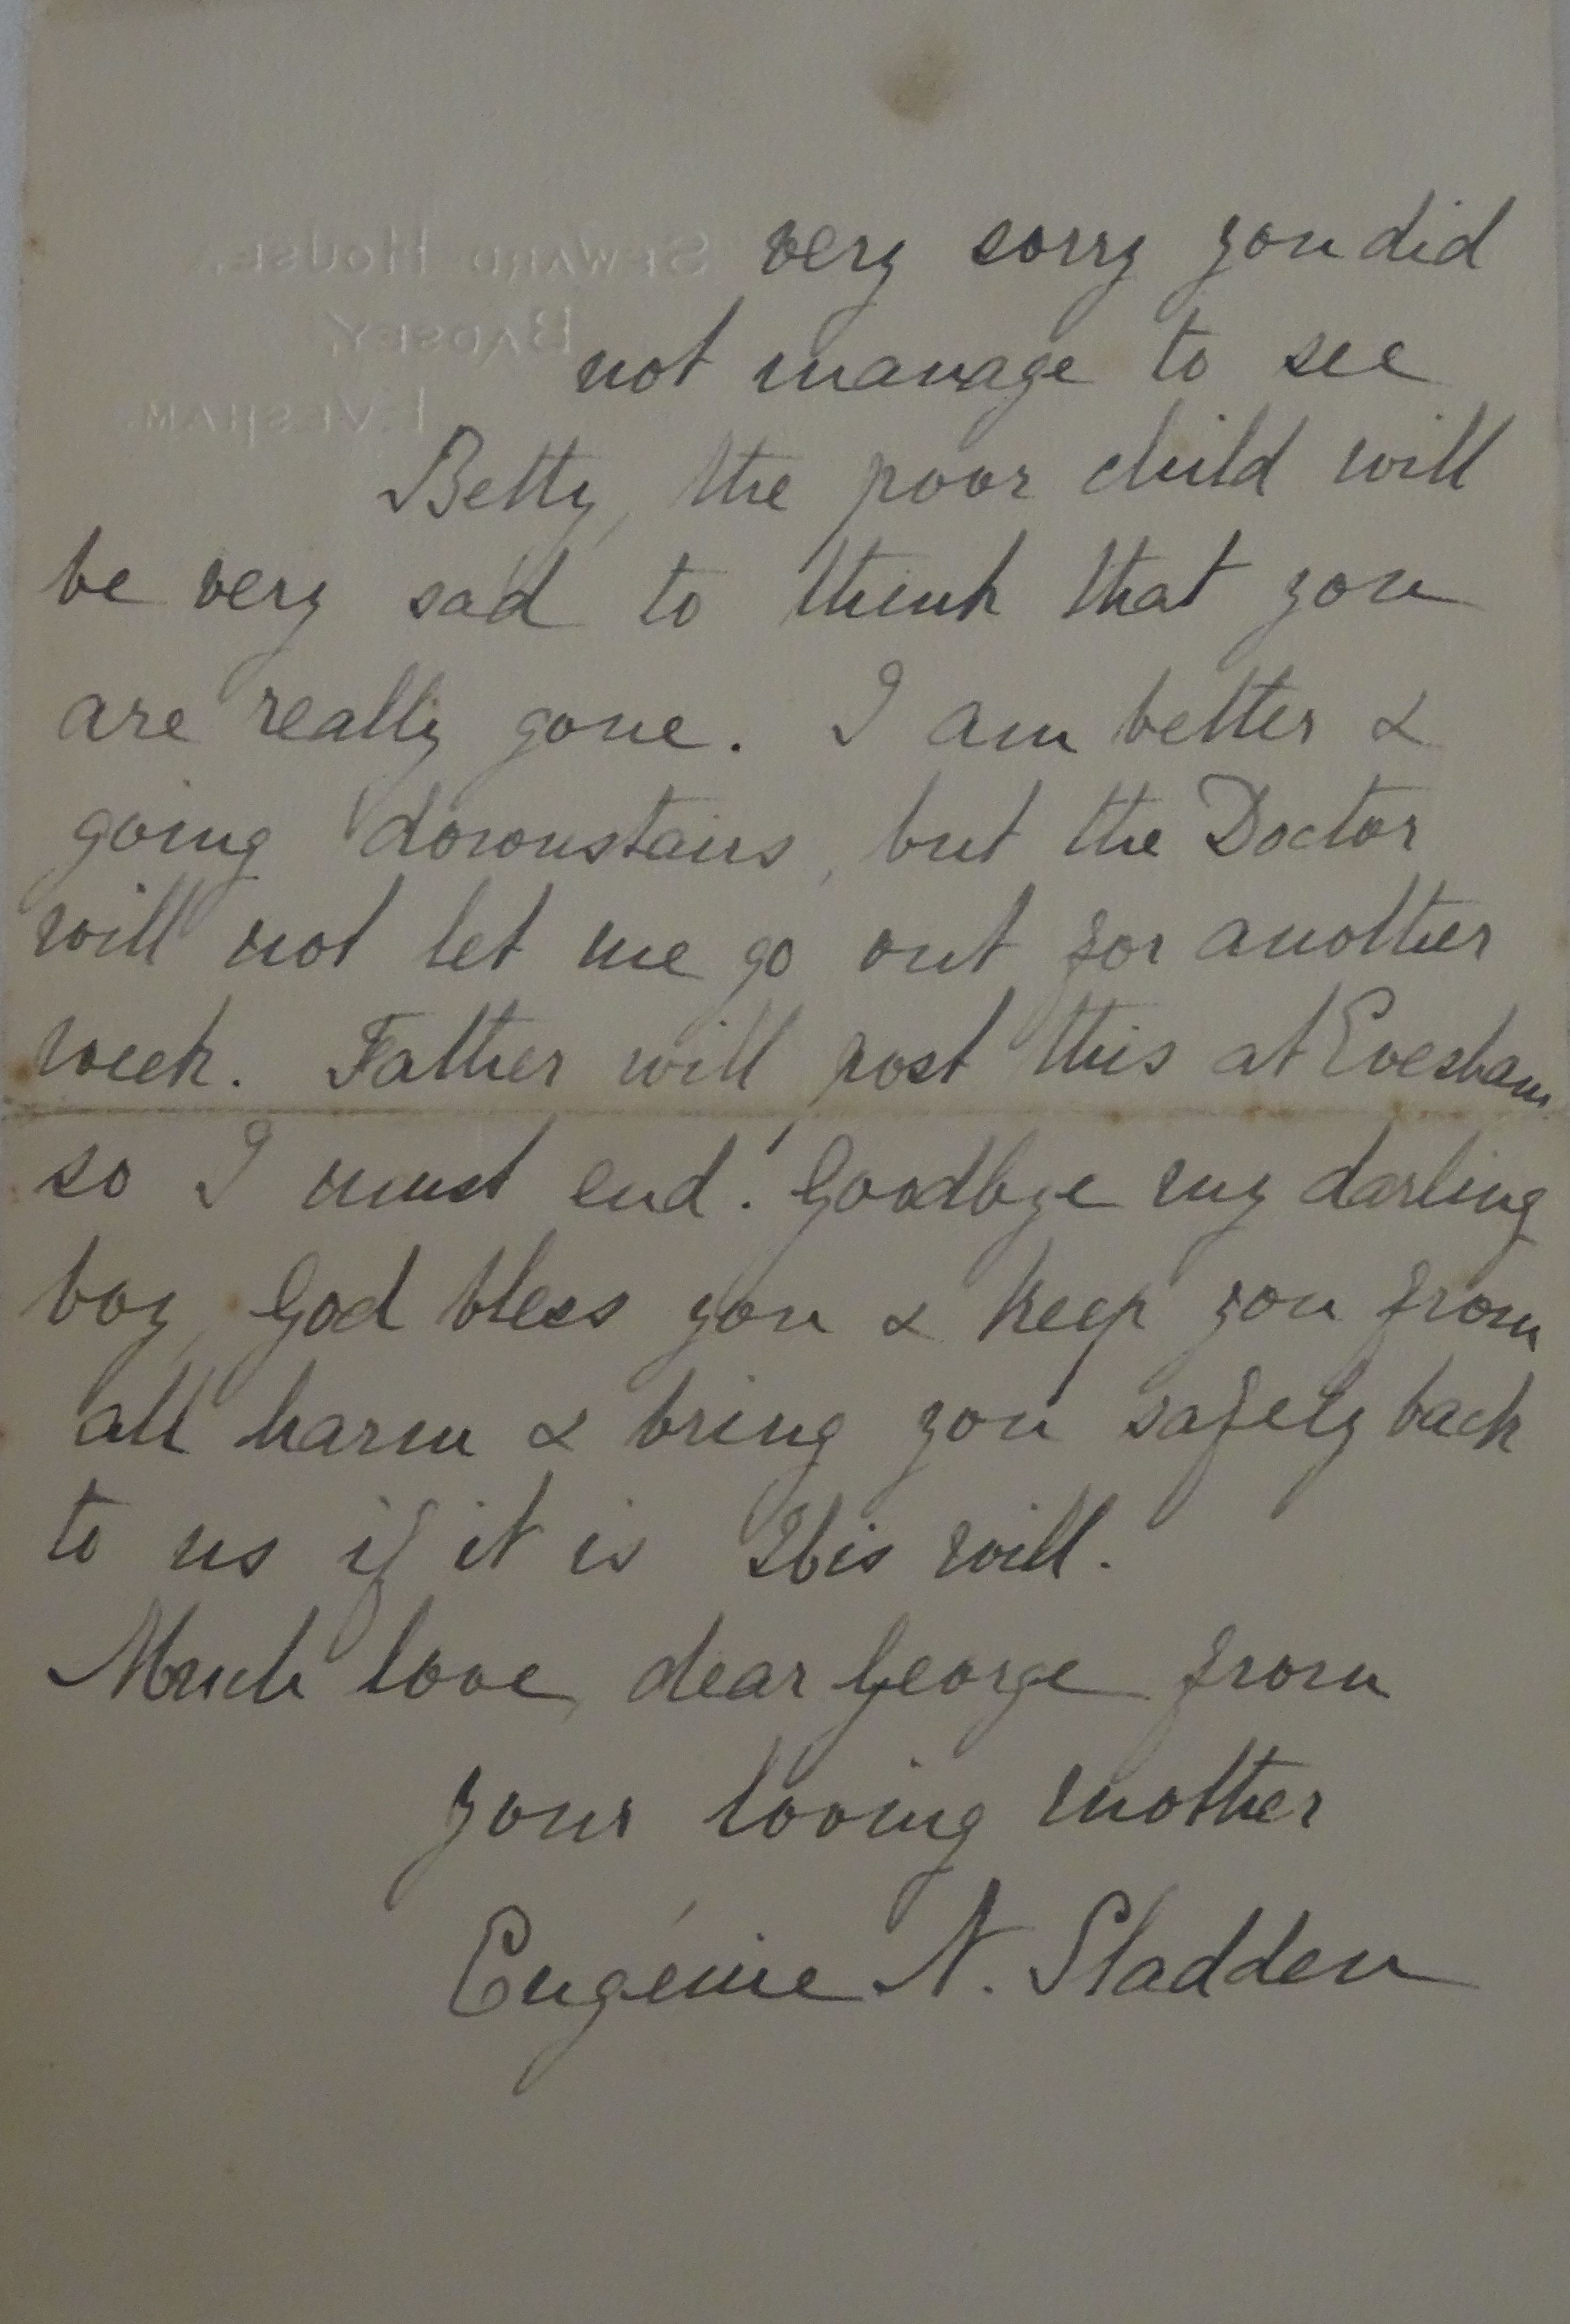 SEWARD HOUSE,
BADSEY,
EVESHAM.
very sorry you did
not manage to see
Betty, the poor child will
be very sad to think that you
are really gone. I am better &
going downstairs, but the Doctor
will not let me go out for another
week. Father will post this at Evesham
so I must end. Goodbye my darling
boy, God bless you & keep you from
all harm & bring you safely back
to us if it is His will.
Much love, dear George from
your loving mother
Eugénie N. Sladden